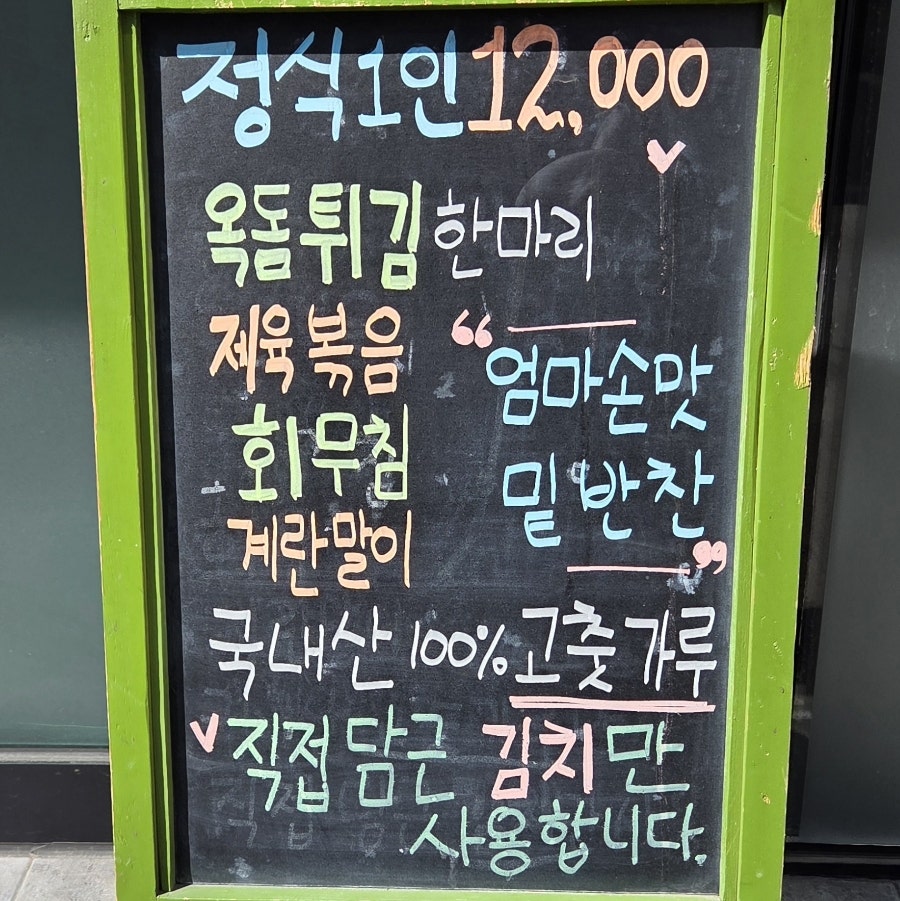 정식1인 12,000
옥돔튀김 한마리
제육볶음
회무침
계란말이
"엄마손맛
밑반찬"
국내산 100% 고춧가루
직접담근 김치만
사용합니다.